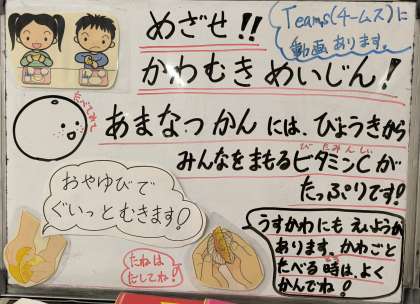 めざせ!!
Teams(チームズ)に
動画あります。
かわむきめいじん!
たべてみて
あまなつかんには、びょうきから
みんなをまもるビタミンCが
びたみんしぃ
たっぷりです!
おやゆびで
ぐいっとむきます!
うすかわにもえいようが
あります。かわごと
たべる時は、よく
かんでね!
たねは
だしてね!